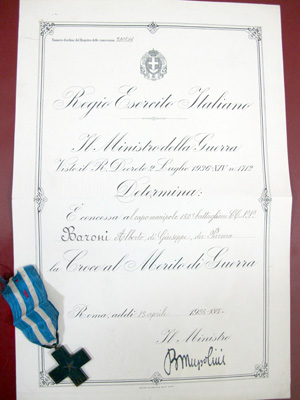 Numero d'ordine del Registro delle concessioni
Regio Esercito Italiano
Il Ministro della Guerra
Visto il R. Decreto 2 Luglio 1936 XIV n. 1712
Determina:
È concessa a capomanipolo battaglione
Baroni Alberto di Giuseppe, da
la Croce al Merito di Guerra
Roma, addì 13 aprile 1938 XVI
Il Ministro
BMussolini